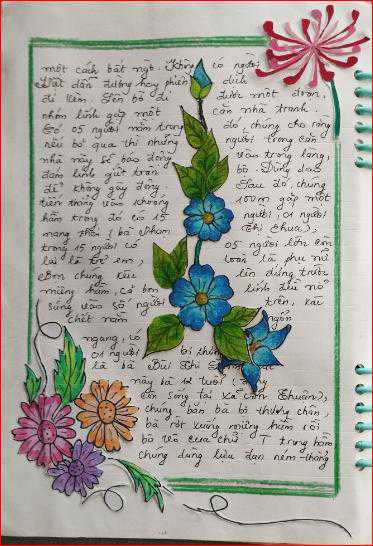 một cách bất ngờ. Không có người
dắt dẫn đường hay phiên dịch
đi kèm. Lên bờ đi được một đoạn,
nhóm lính gặp một căn nhà tranh.
Có 05 người nằm trong đó, chúng cho rằng
nếu bỏ qua thì những người trong căn
nhà này sẽ báo động vào trong làng,
đám lính giết toàn bộ. Dùng dao
để không gây động. Sau đó, chúng
tiến thẳng vào khoảng 100m gặp một
hầm trong đó có 15 người, 01 người
mang thai (bà Phạm Thị Chưa),
trong 15 người có 05 người lớn còn
lại là trẻ em, toàn là phụ nữ
Bọn chúng kêu lên đứng trước
miệng hầm, cả bọn lính đều nổ
súng vào số người trên, xác
chết nằm ngổn
ngang, có
01 người bị thương
là bà Bùi Thị
này bà 12 tuổi
còn sống tại xã Thuận),
chúng bắn bà bị thương chân,
bà rớt xuống miệng hầm rồi
bò vào cửa chữ T trong hầm
chúng dùng lựu đạn ném thẳng